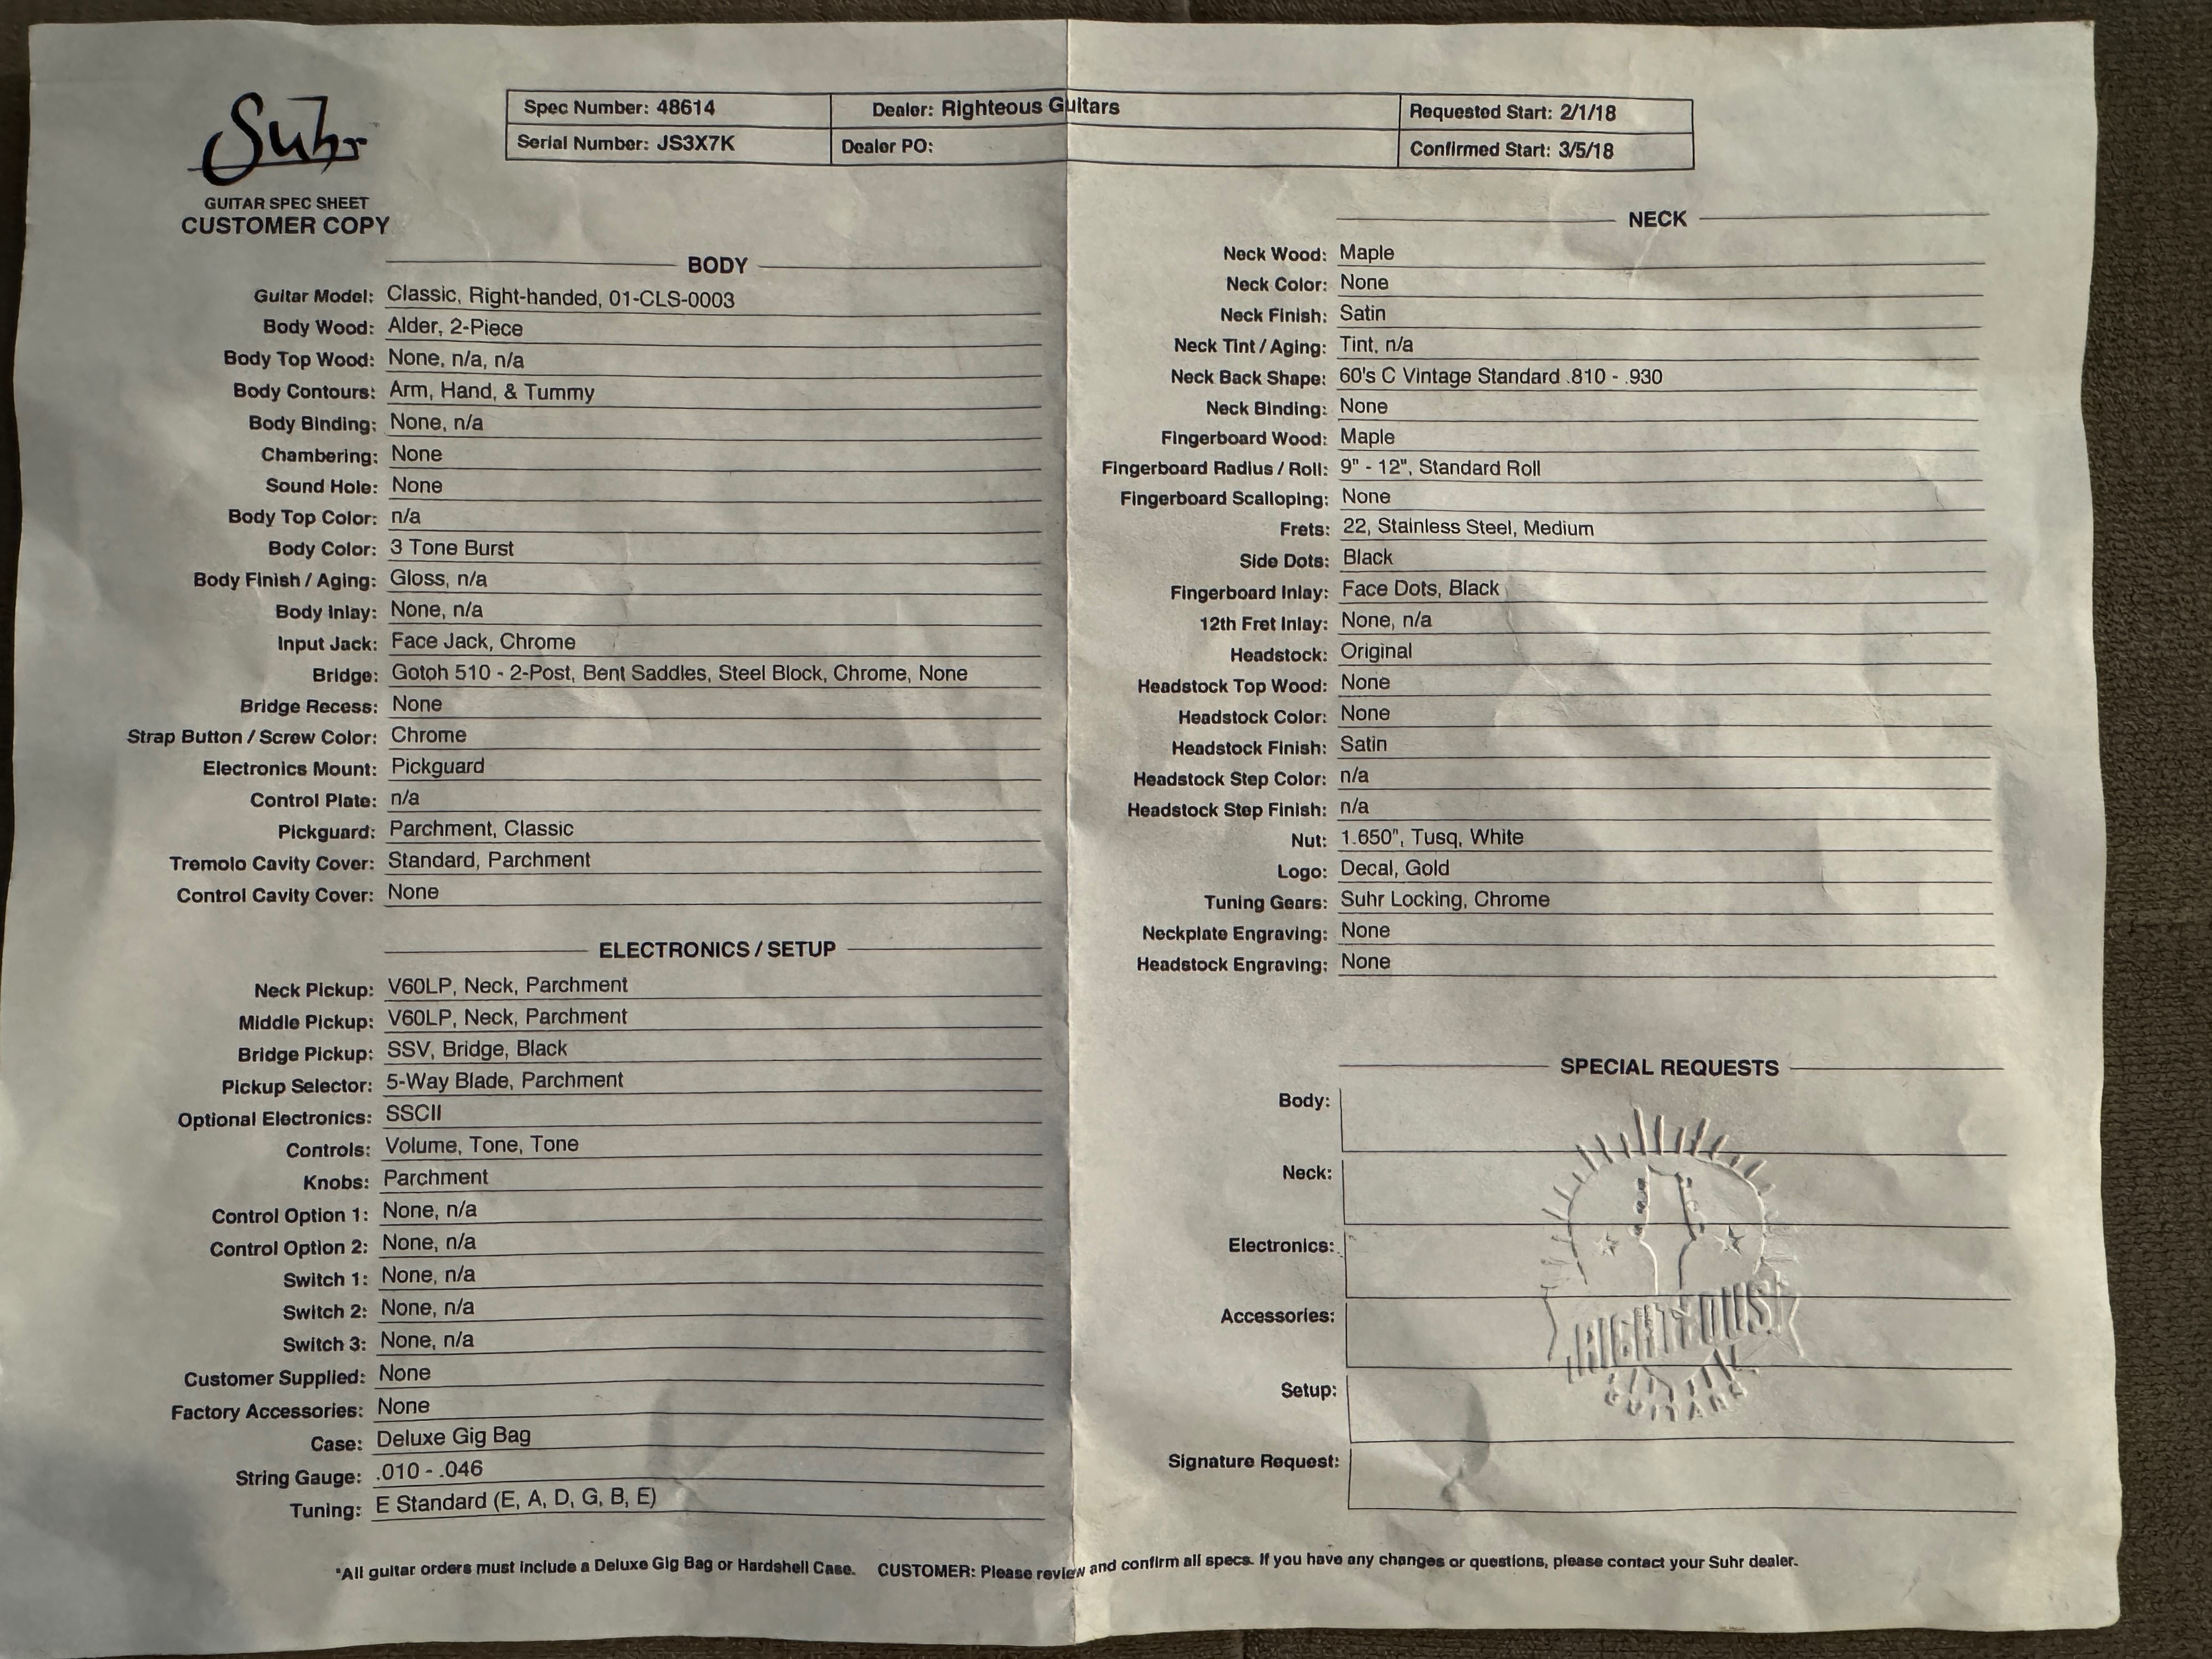 Suhr
GUITAR SPEC SHEET
CUSTOMER COPY
Spec Number: 48614
Dealer: Righteous Guitars
Requested Start: 2/1/18
Serial Number: JS3X7K
Dealer PO:
Confirmed Start: 3/5/18
BODY
Guitar Model: Classic, Right-handed, 01-CLS-0003
Body Wood: Alder, 2-Piece
Body Top Wood: None, n/a, n/a
Body Contours: Arm, Hand, & Tummy
Body Binding: None, n/a
Chambering: None
Sound Hole: None
Body Top Color: n/a
Body Color: 3 Tone Burst
Body Finish / Aging: Gloss, n/a
Body Inlay: None, n/a
Input Jack: Face Jack, Chrome
Bridge: Gotoh 510 - 2-Post, Bent Saddles, Steel Block, Chrome, None
Bridge Recess: None
Strap Button / Screw Color: Chrome
Electronics Mount: Pickguard
Control Plate: n/a
Pickguard: Parchment, Classic
Tremolo Cavity Cover: Standard, Parchment
Control Cavity Cover: None
ELECTRONICS / SETUP
Neck Pickup: V60LP, Neck, Parchment
Middle Pickup: V60LP, Neck, Parchment
Bridge Pickup: SSV, Bridge, Black
Pickup Selector: 5-Way Blade, Parchment
Optional Electronics: SSCII
Controls: Volume, Tone, Tone
Knobs: Parchment
Control Option 1: None, n/a
Control Option 2: None, n/a
Switch 1: None, n/a
Switch 2: None, n/a
Switch 3: None, n/a
Customer Supplied: None
Factory Accessories: None
Case: Deluxe Gig Bag
String Gauge: .010 - .046
Tuning: E Standard (E, A, D, G, B, E)
NECK
Neck Wood: Maple
Neck Color: None
Neck Finish: Satin
Neck Tint / Aging: Tint, n/a
Neck Back Shape: 60's C Vintage Standard .810 - .930
Neck Binding: None
Fingerboard Wood: Maple
Fingerboard Radius / Roll: 9" - 12", Standard Roll
Fingerboard Scalloping: None
Frets: 22, Stainless Steel, Medium
Side Dots: Black
Fingerboard Inlay: Face Dots, Black
12th Fret Inlay: None, n/a
Headstock: Original
Headstock Top Wood: None
Headstock Color: None
Headstock Finish: Satin
Headstock Step Color: n/a
Headstock Step Finish: n/a
Nut: 1.650", Tusq, White
Logo: Decal, Gold
Tuning Gears: Suhr Locking, Chrome
Neckplate Engraving: None
Headstock Engraving: None
SPECIAL REQUESTS
Body:
Neck:
Electronics:
Accessories:
Setup:
Signature Request:
RIGHTEOUS
GUITARS
*All guitar orders must include a Deluxe Gig Bag or Hardshell Case. CUSTOMER: Please review and confirm all specs. If you have any changes or questions, please contact your Suhr dealer.